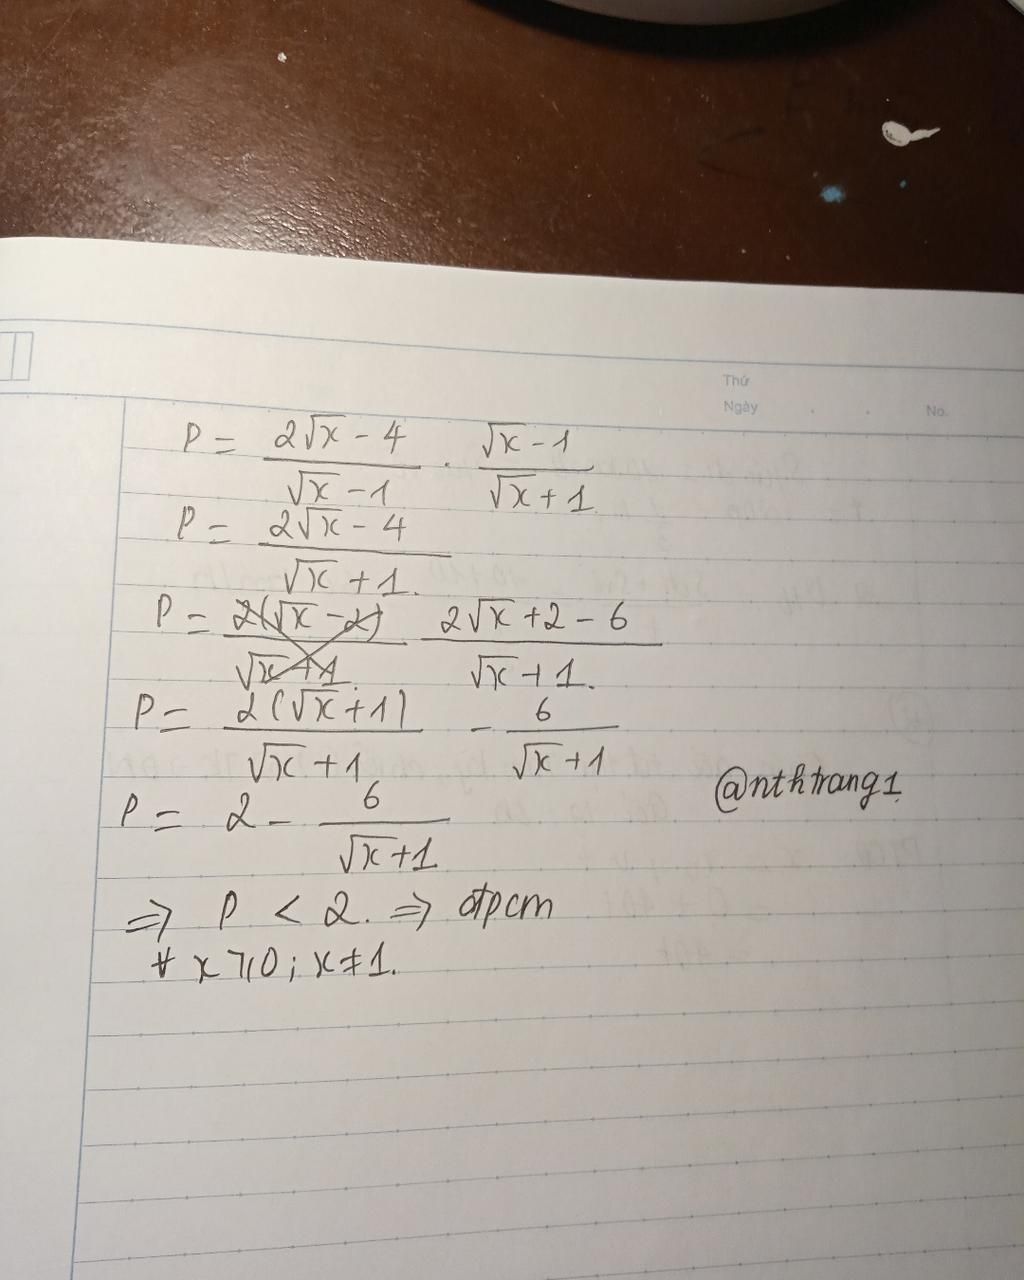 Thứ
Ngày . . No.
P = (2√x - 4)/(√x - 1) . (√x - 1)/(√x + 1)
P = (2√x - 4)/(√x + 1).
P = (2√x + 2 - 6)/(√x + 1).
P = 2(√x + 1)/(√x + 1) - 6/(√x + 1)
@nthtrang1
P = 2 - 6/(√x + 1)
⇒ P < 2. ⇒ đpcm
∀ x ⩾ 0; x ≠ 1.